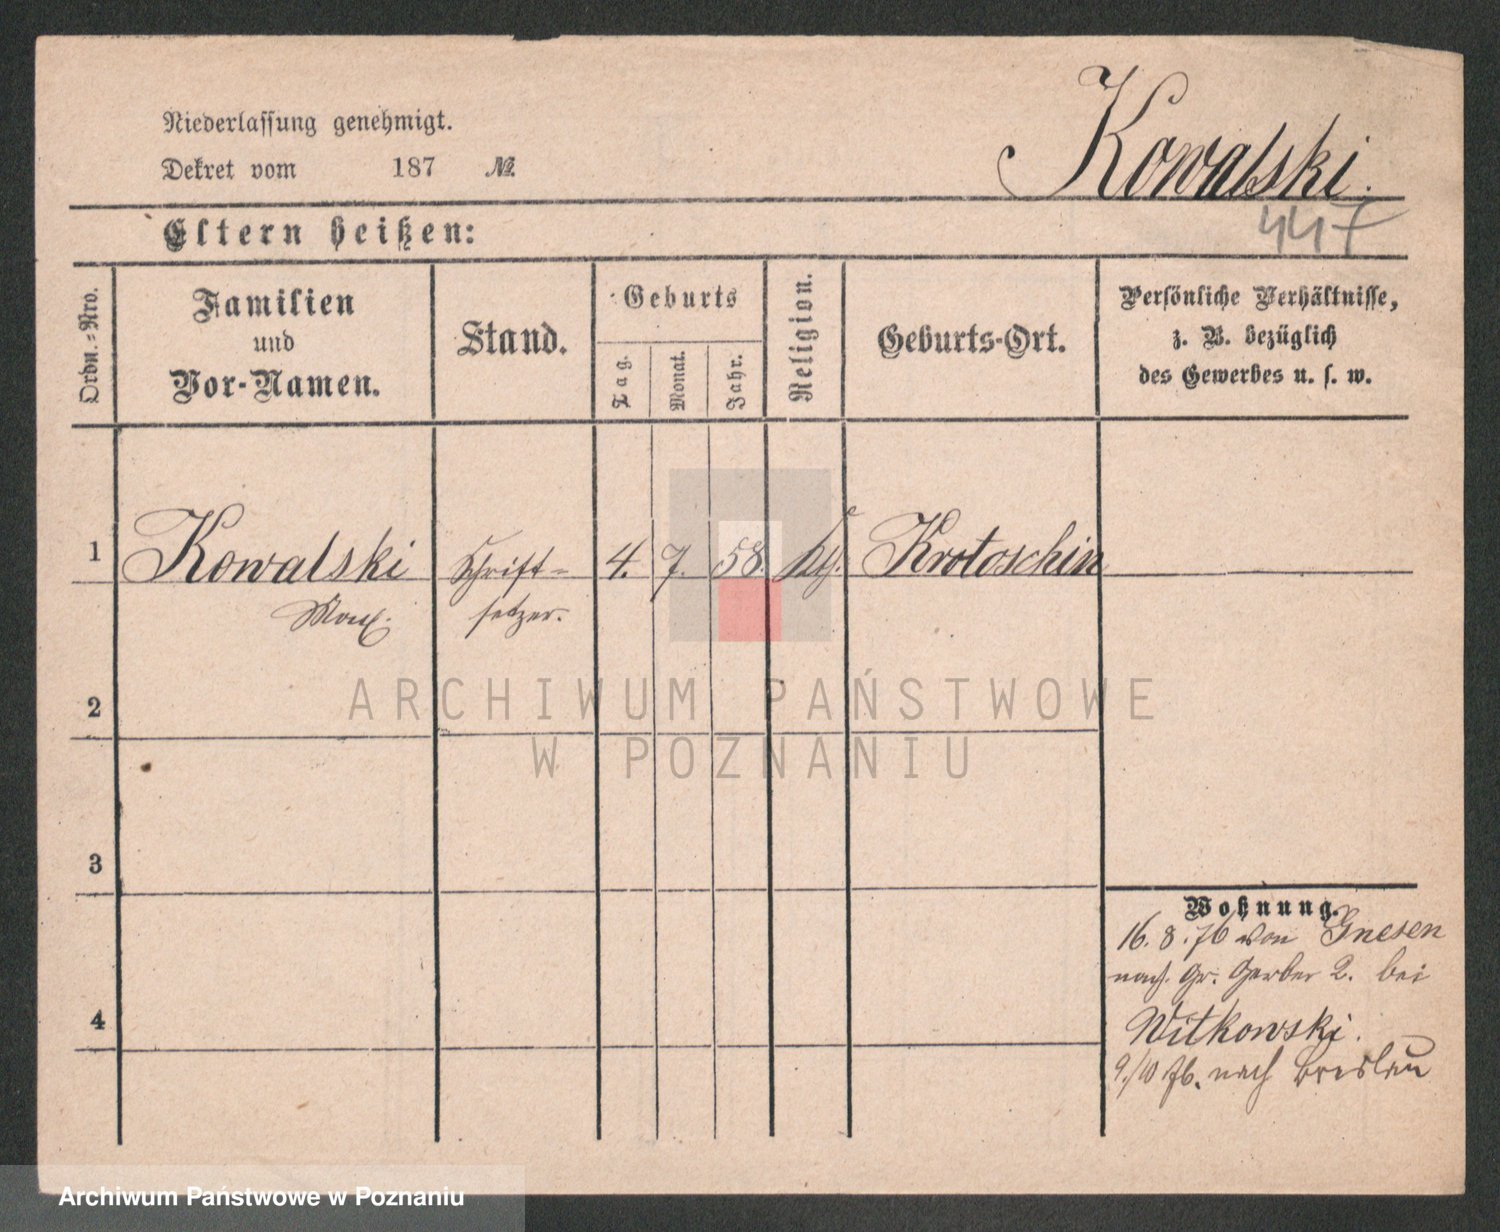 Niederlassung genehmigt.
Dekret vom 187 №.
Kowalski.
447
Eltern heißen:
Ordn.-Nro.
Familien
und
Vor-Namen.
Stand.
Geburts
Tag.
Monat.
Jahr.
Religion.
Geburts-Ort.
Persönliche Verhältnisse,
z. B. bezüglich
des Gewerbes u. s. w.
1 Kowalski Schrift- 4. 7. 58. kth. Krotoschin
Max. setzer.
2
ARCHIWUM PAŃSTWOWE
W POZNANIU
3
Wohnung.
16. 8. 76 von Gnesen
nach Gr. Gerber 2. bei
4
Witkowski.
9./10 76. nach Breslau
Archiwum Państwowe w Poznaniu